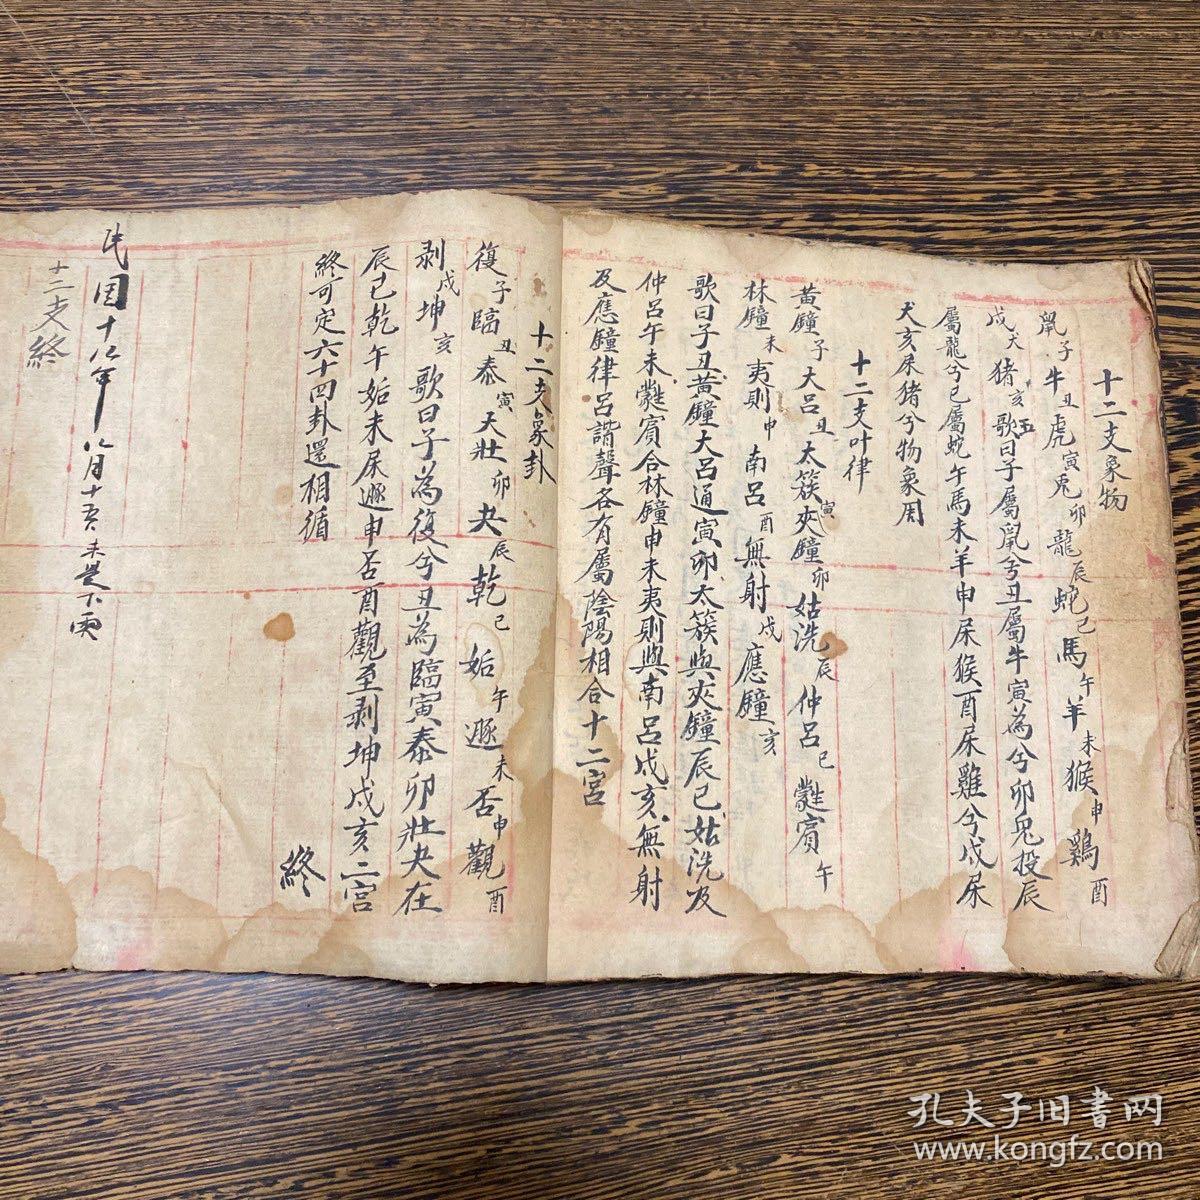 十二支象物
鼠子牛丑虎寅兎卯龍辰蛇巳馬午羊未猴申鷄酉
戌犬猪亥 歌曰子屬鼠兮丑屬牛寅為兮卯兔投辰
屬龍兮巳屬蛇午馬未羊申屎猴酉屎雞兮戌屎
犬亥屎猪兮物象周
十二支叶律
黃鐘子大呂丑太簇寅夾鐘卯姑洗辰仲呂巳蕤賓午
林鐘未夷則申南呂酉無射戌應鐘亥
歌曰子丑黃鐘大呂通寅卯太簇與夾鐘辰巳姑洗及
仲呂午未蕤賓合林鐘申未夷則與南呂戌亥無射
及應鐘律呂諧聲各有屬陰陽相合十二宮
十二支象卦
復子臨丑泰寅大壯卯夬辰乾巳姤午遯未否申觀酉
剥戌坤亥 歌曰子為復兮丑為臨寅泰卯壯夬在
辰巳乾午姤未屎遯申否酉觀至剥坤戌亥二宮
終可定六十四卦還相循
終
民国十八年八月十五未是下雨
十二支終
孔夫子旧書网
www.kongfz.com